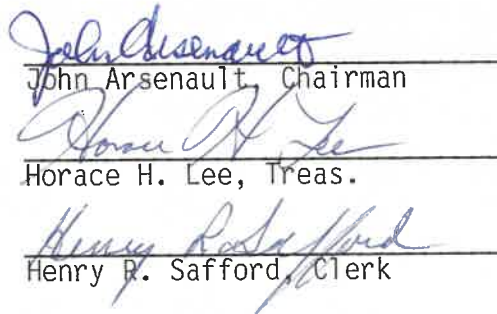 John Arsenault
John Arsenault, Chairman
Horace H Lee
Horace H. Lee, Treas.
Henry R. Safford
Henry R. Safford, Clerk